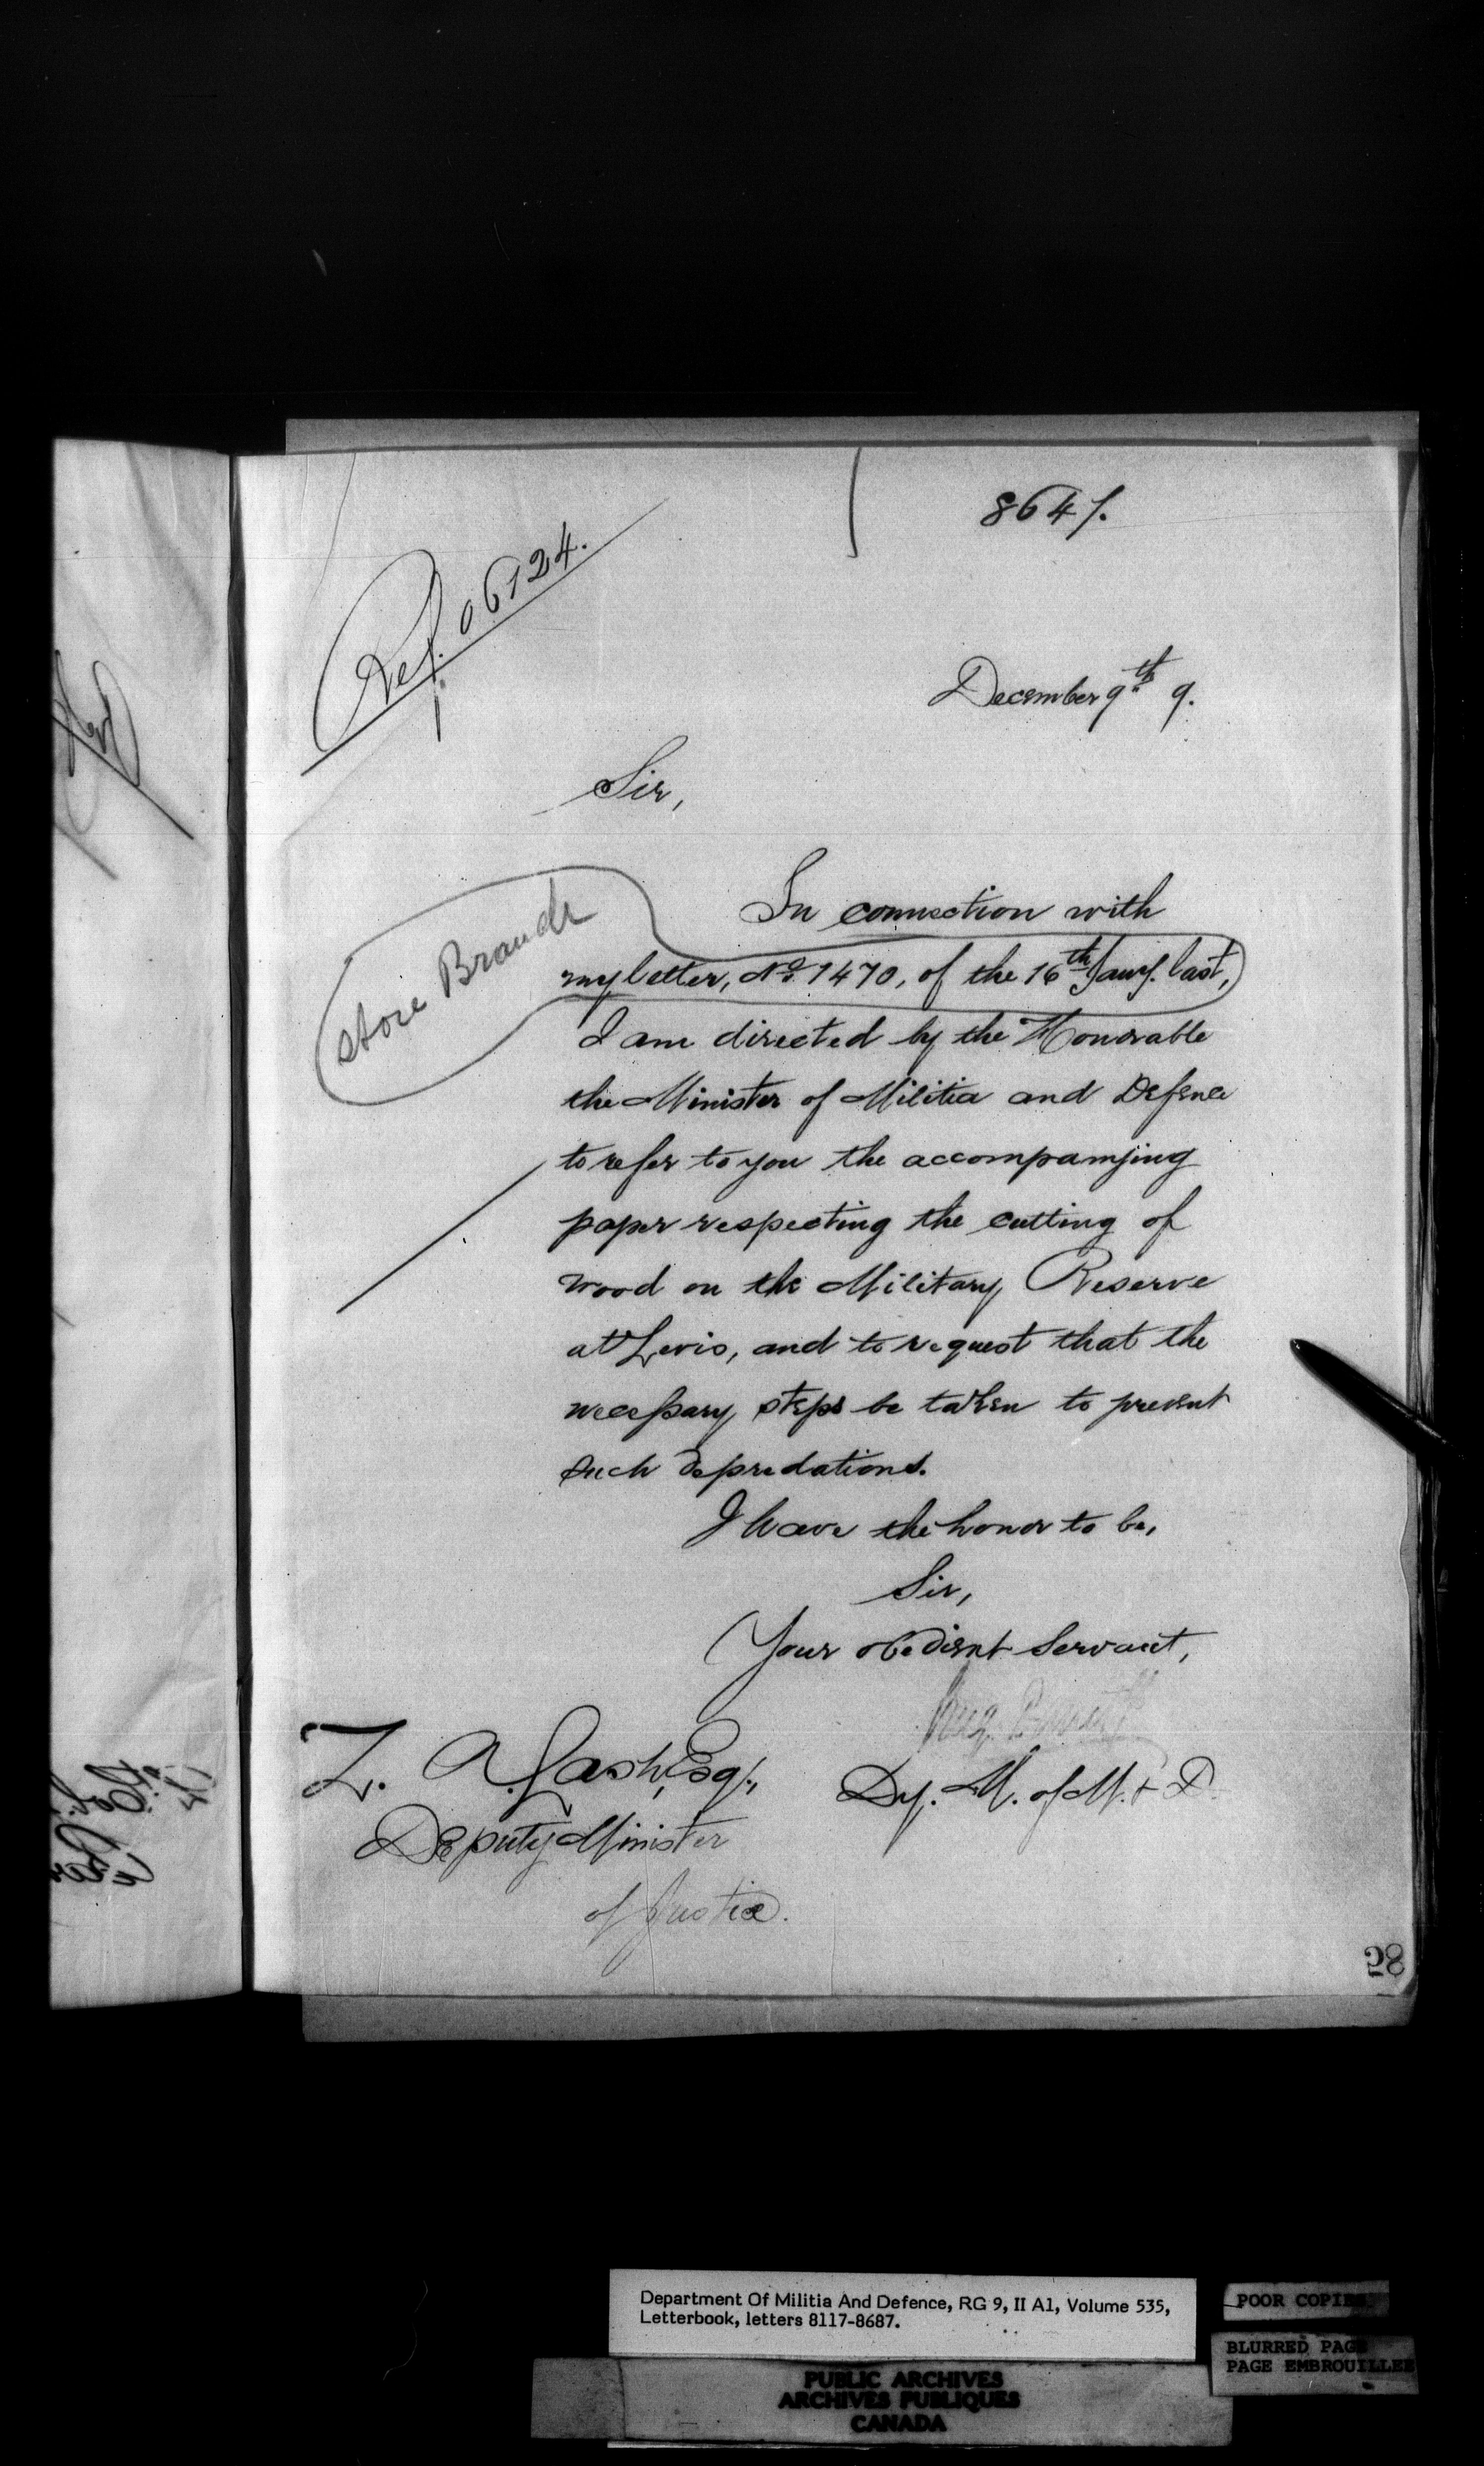 8641.
Ref. 06124.
December 9th 9.
Sir,
In connection with
Store Branch
my letter, No. 1470, of the 16th Jany. last,
I am directed by the Honorable
the Minister of Militia and Defence
to refer to you the accompanying
paper respecting the cutting of
wood on the Military Reserve
at Levis, and to request that the
necessary steps be taken to prevent
such depredations.
I have the honor to be,
Sir,
Your obedient Servant,
Z. A. Lash, Esq.,
Dy. M. of M. & D.
Deputy Minister
of Justice.
28
Department Of Militia And Defence, RG 9, II A1, Volume 535,
Letterbook, letters 8117-8687.
POOR COPIES
BLURRED PAGE
PAGE EMBROUILLEE
PUBLIC ARCHIVES
ARCHIVES PUBLIQUES
CANADA